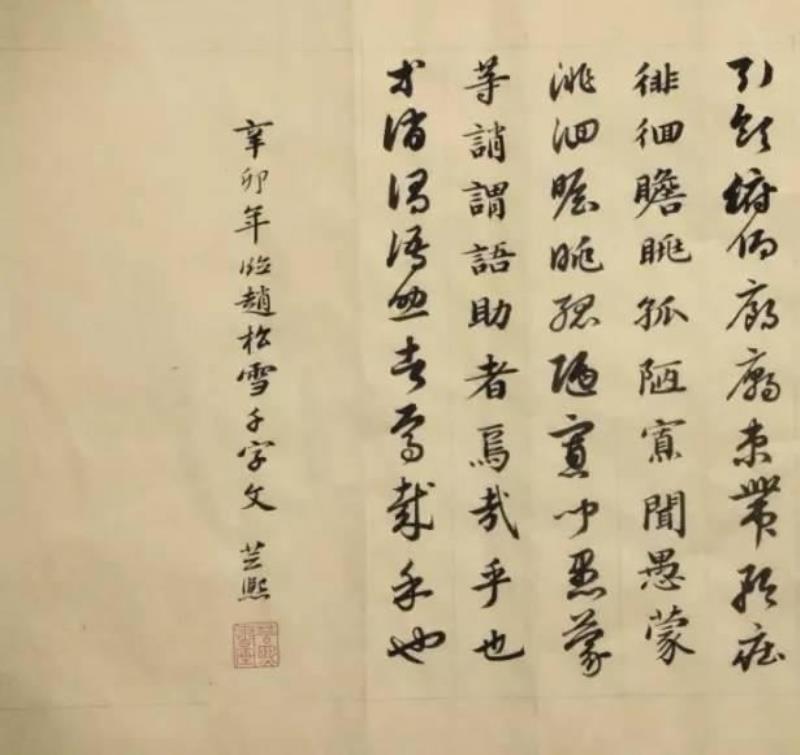 引領俯仰廊廟束帶矜莊
徘徊瞻眺孤陋寡聞愚蒙
徘徊瞻眺孤陋寡聞愚蒙
等誚謂語助者焉哉乎也
等誚謂語助者焉哉乎也
辛卯年臨趙松雪千字文 芸熙